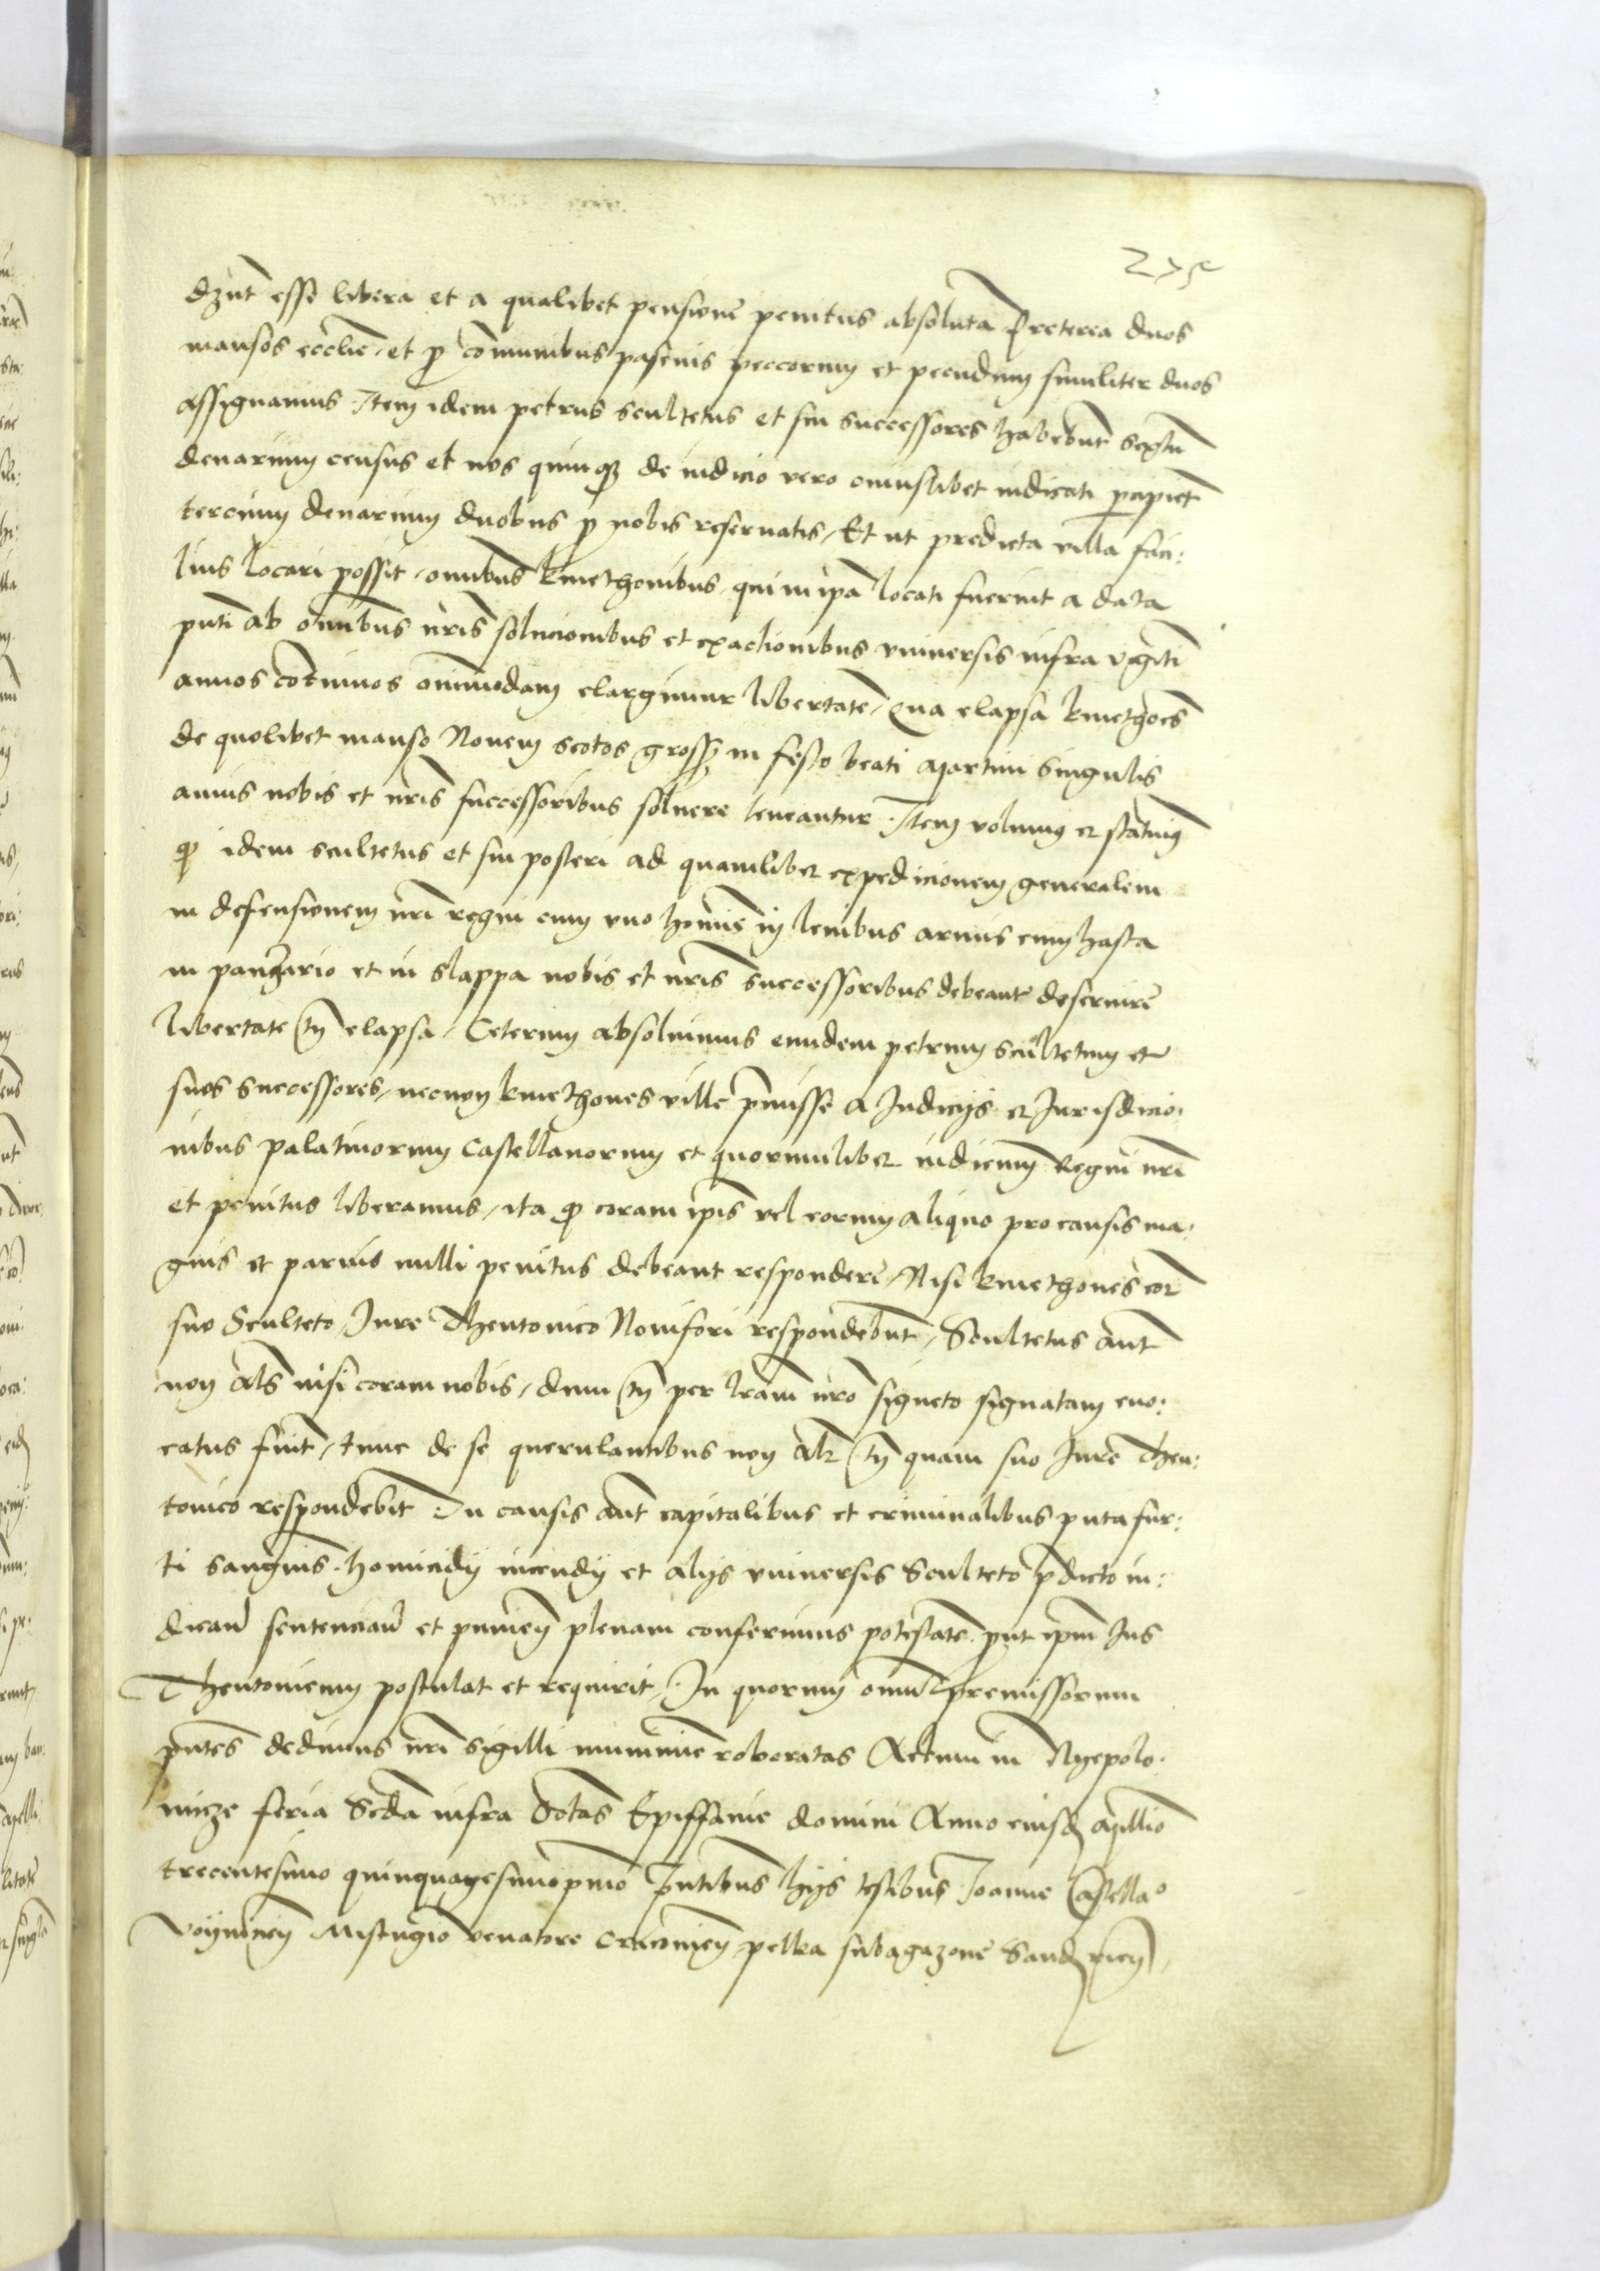 275
dzut esse libera et a qualibet pensione penitus absoluta Preterea duos
mansos ecclie, et p comunibus pascuis peccorum et pecudum similiter duos
assignamus Item idem petrus scultetus et sui successores habebunt sextu
denarium census et nos quinqz de iudicio vero cuiuslibet iudicati pcipiet
tercium denarium duobus p nobis reservatis, Et ut predicta villa faci:
lius locari possit, omnibus kmethonibus qui in ipa locati fuerint a data
pnti ab omibus nris solucionibus et exactionibus vniversis infra viginti
annos cotinuos omimodam elargimur libertate, Qua elapsa kmethoes
de quolibet manso Novem scotos gross in festo beati Martini singulis
annis nobis et nris successoribus solvere teneantur. Item volumus et statuimus
q idem scultetus et sui posteri ad quamlibet expedicionem generalem
in defensionem nri regni cum vno homie in levibus armis cum hasta
in panzario et in slappa nobis et nris successoribus debeant deservire
libertate tn elapsa, Ceterum absolvimus eundem petrum scultetum et
suos successores, necnon kmethones ville pmisse a Iudicijs et Iurisdicio:
nibus palatinorum Castellanorum et quorumlibet iudicum Regni nri
et penitus liberamus, ita q coram ipis vel eorum aliquo pro causis ma:
gnis et parvis nulli penitus debeant respondere, Nisi kmethones cor
suo Sculteto Iure Theutonico Novifori respondebunt, Scultetus aut
non als nisi coram nobis, dum tn per lram nro signeto signatam evo:
catus fuit, tunc de se querulantibus non alr tn quam suo Iure Theu:
tonico respondebit In causis aut capitalibus et criminalibus puta fur:
ti sanguis homicidij incendij et alijs vniversis Sculteto pdicto iu:
dicand sentenciand et puniend plenam conferimus potestate put ipm Ius
Theutonicum postulat et requirit, In quorum omi premissorum
pntes dedimus nri sigilli munimie roboratas Actum in Nyepolo:
micze feria Scda infra octas Epiffanie domini Anno eiusd Millio
trecentesimo quinquagesimopmo Pntibus hijs testibus Ioanne Castellao
Voynicien Mstugio venatore Cracovien pelka subagazone Sandricen,